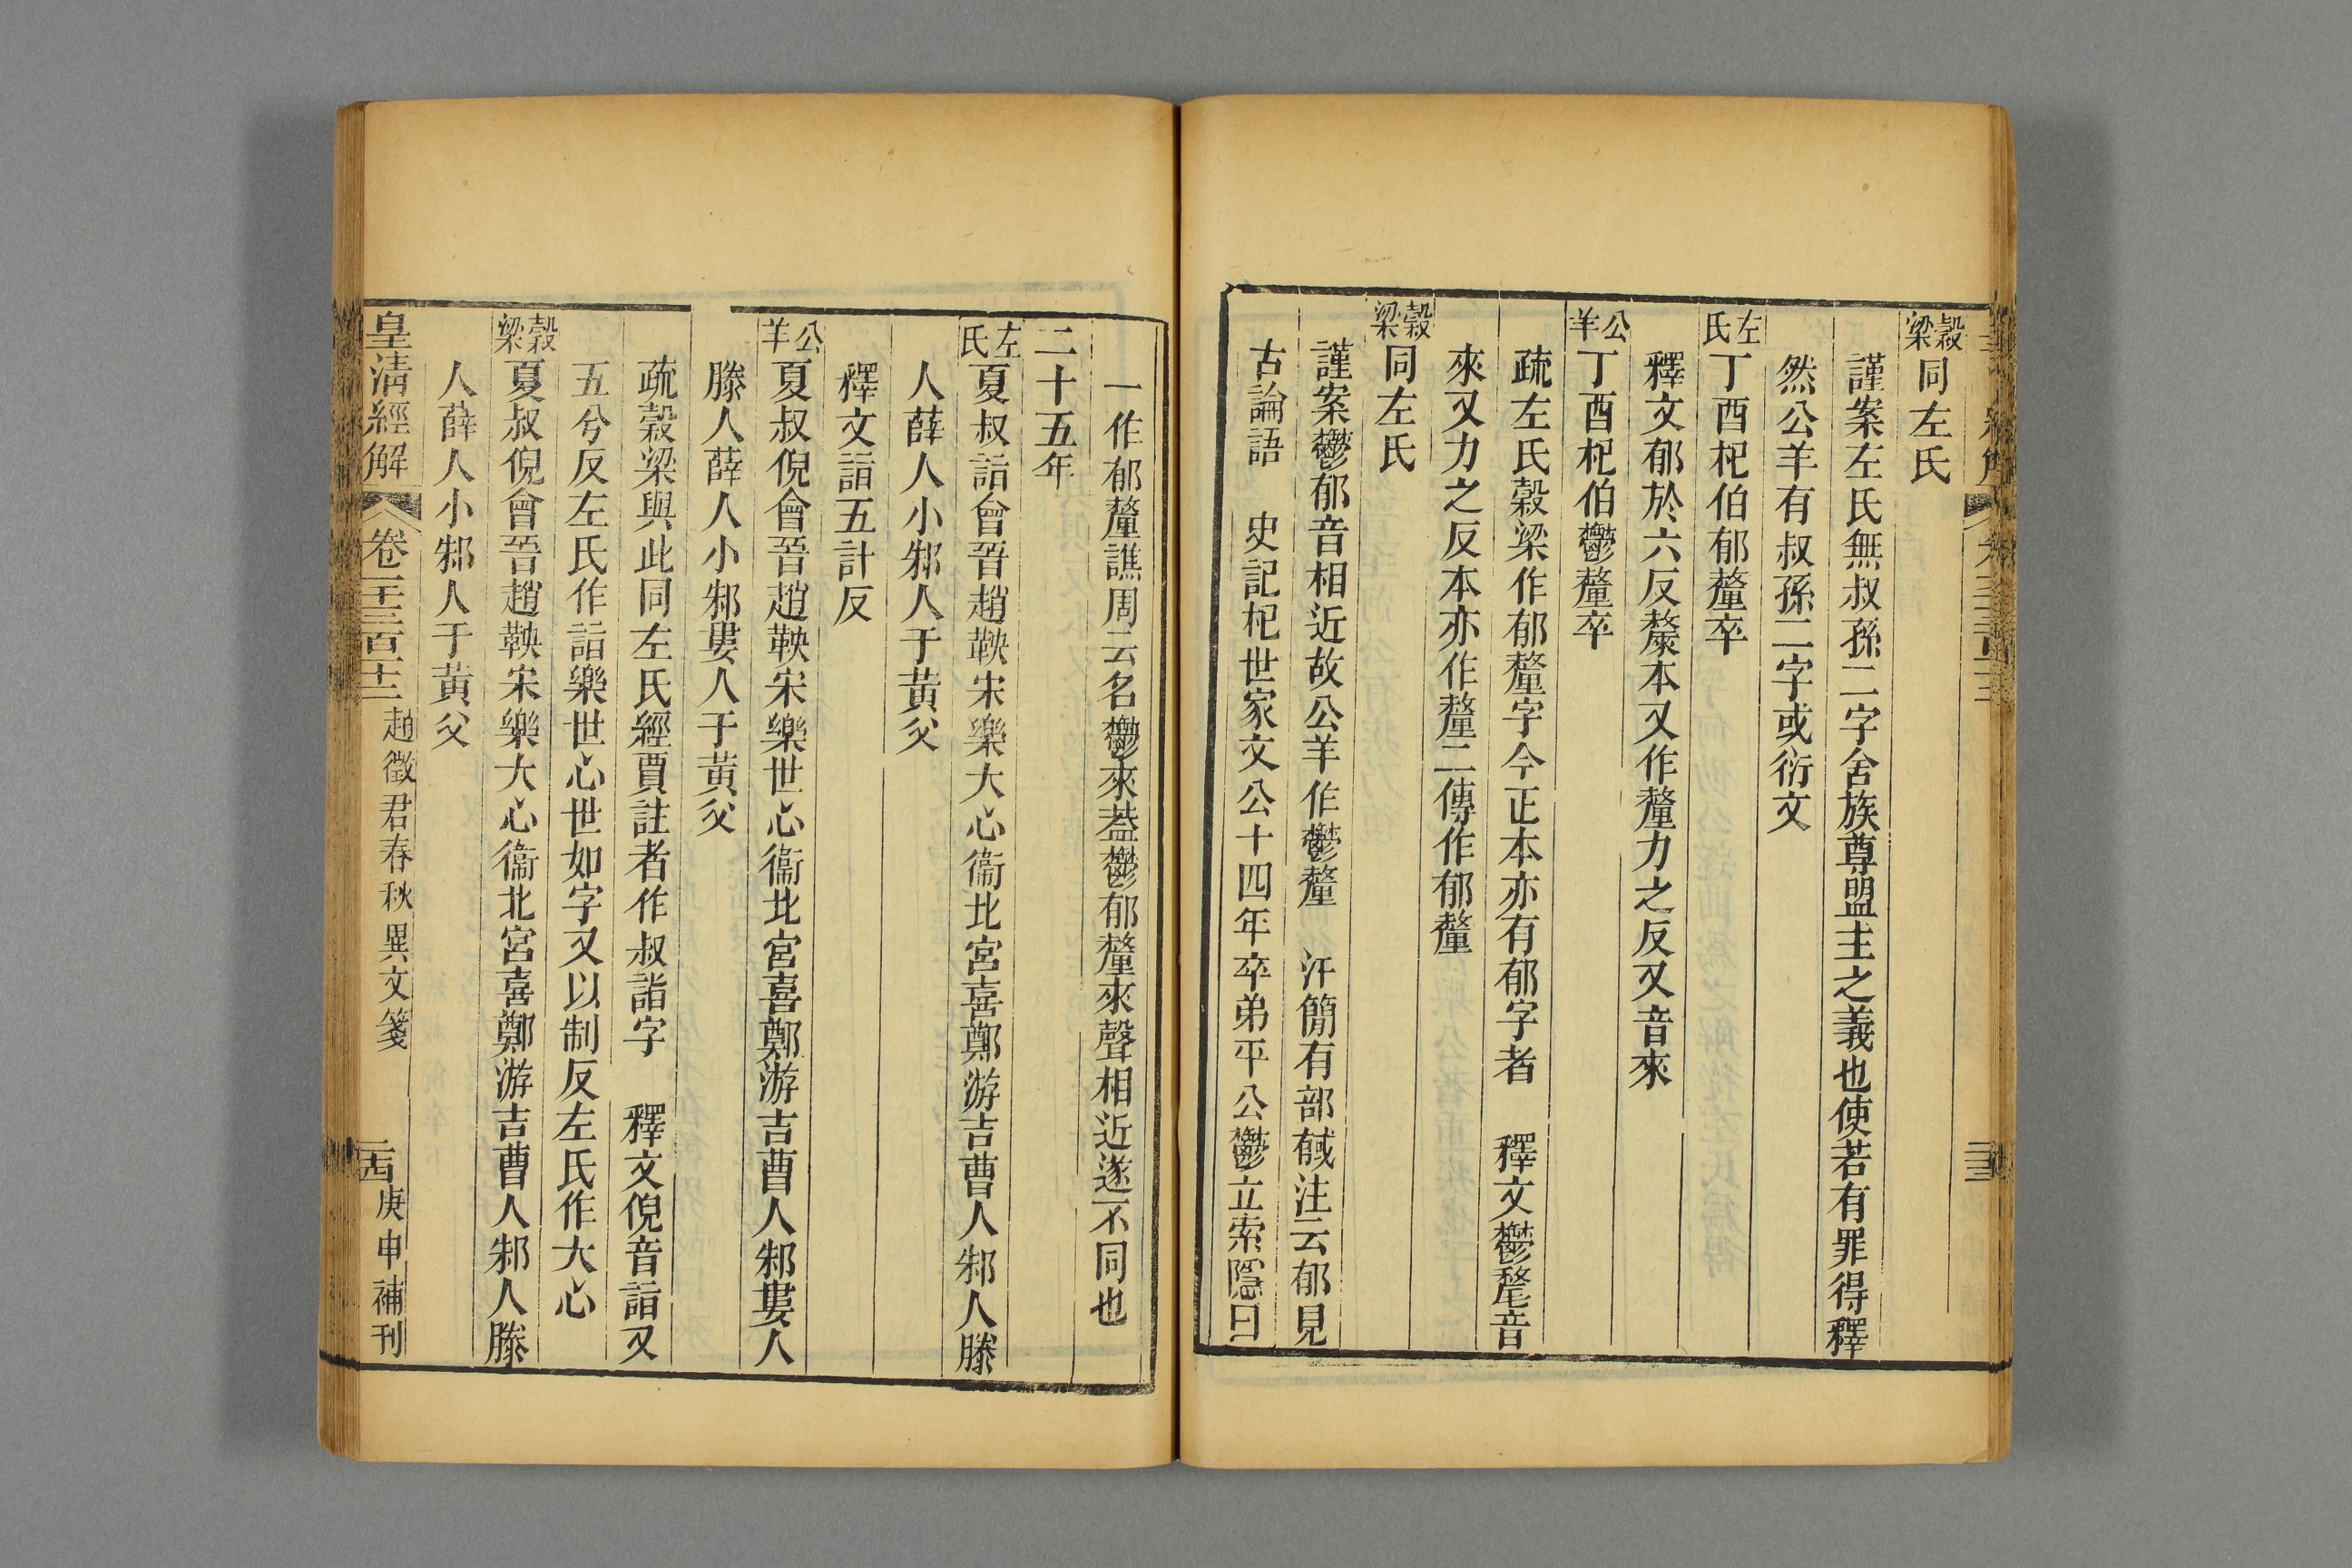 穀梁同左氏
謹案左氏無叔孫二字舍族尊盟主之義也使若有罪得釋
然公羊有叔孫二字或衍文
左氏丁酉杞伯郁釐卒
釋文郁於六反斄本又作釐力之反又音來
公羊丁酉杞伯鬱釐卒
疏左氏穀梁作郁釐字今正本亦有郁字者　釋文鬱氂音
來又力之反本亦作釐二傳作郁釐
穀梁同左氏
謹案鬱郁音相近故公羊作鬱釐　汗簡有部戫注云郁見
古論語　史記杞世家文公十四年卒弟平公鬱立索隱曰
一作郁釐譙周云名鬱來葢鬱郁釐來聲相近遂不同也
二十五年
左氏夏叔詣會晉趙鞅宋樂大心衞北宮喜鄭游吉曹人邾人滕
人薛人小邾人于黃父
釋文詣五計反
公羊夏叔倪會晉趙鞅宋樂世心衞北宮喜鄭游吉曹人邾婁人
滕人薛人小邾婁人于黃父
疏穀梁與此同左氏經賈註者作叔詣字　釋文倪音詣又
五兮反左氏作詣樂世心世如字又以制反左氏作大心
穀梁夏叔倪會晉趙鞅宋樂大心衞北宮喜鄭游吉曹人邾人滕
人薛人小邾人于黃父
皇清經解 卷一千三百十二 趙徵君春秋異文箋 二十四 庚申補刊